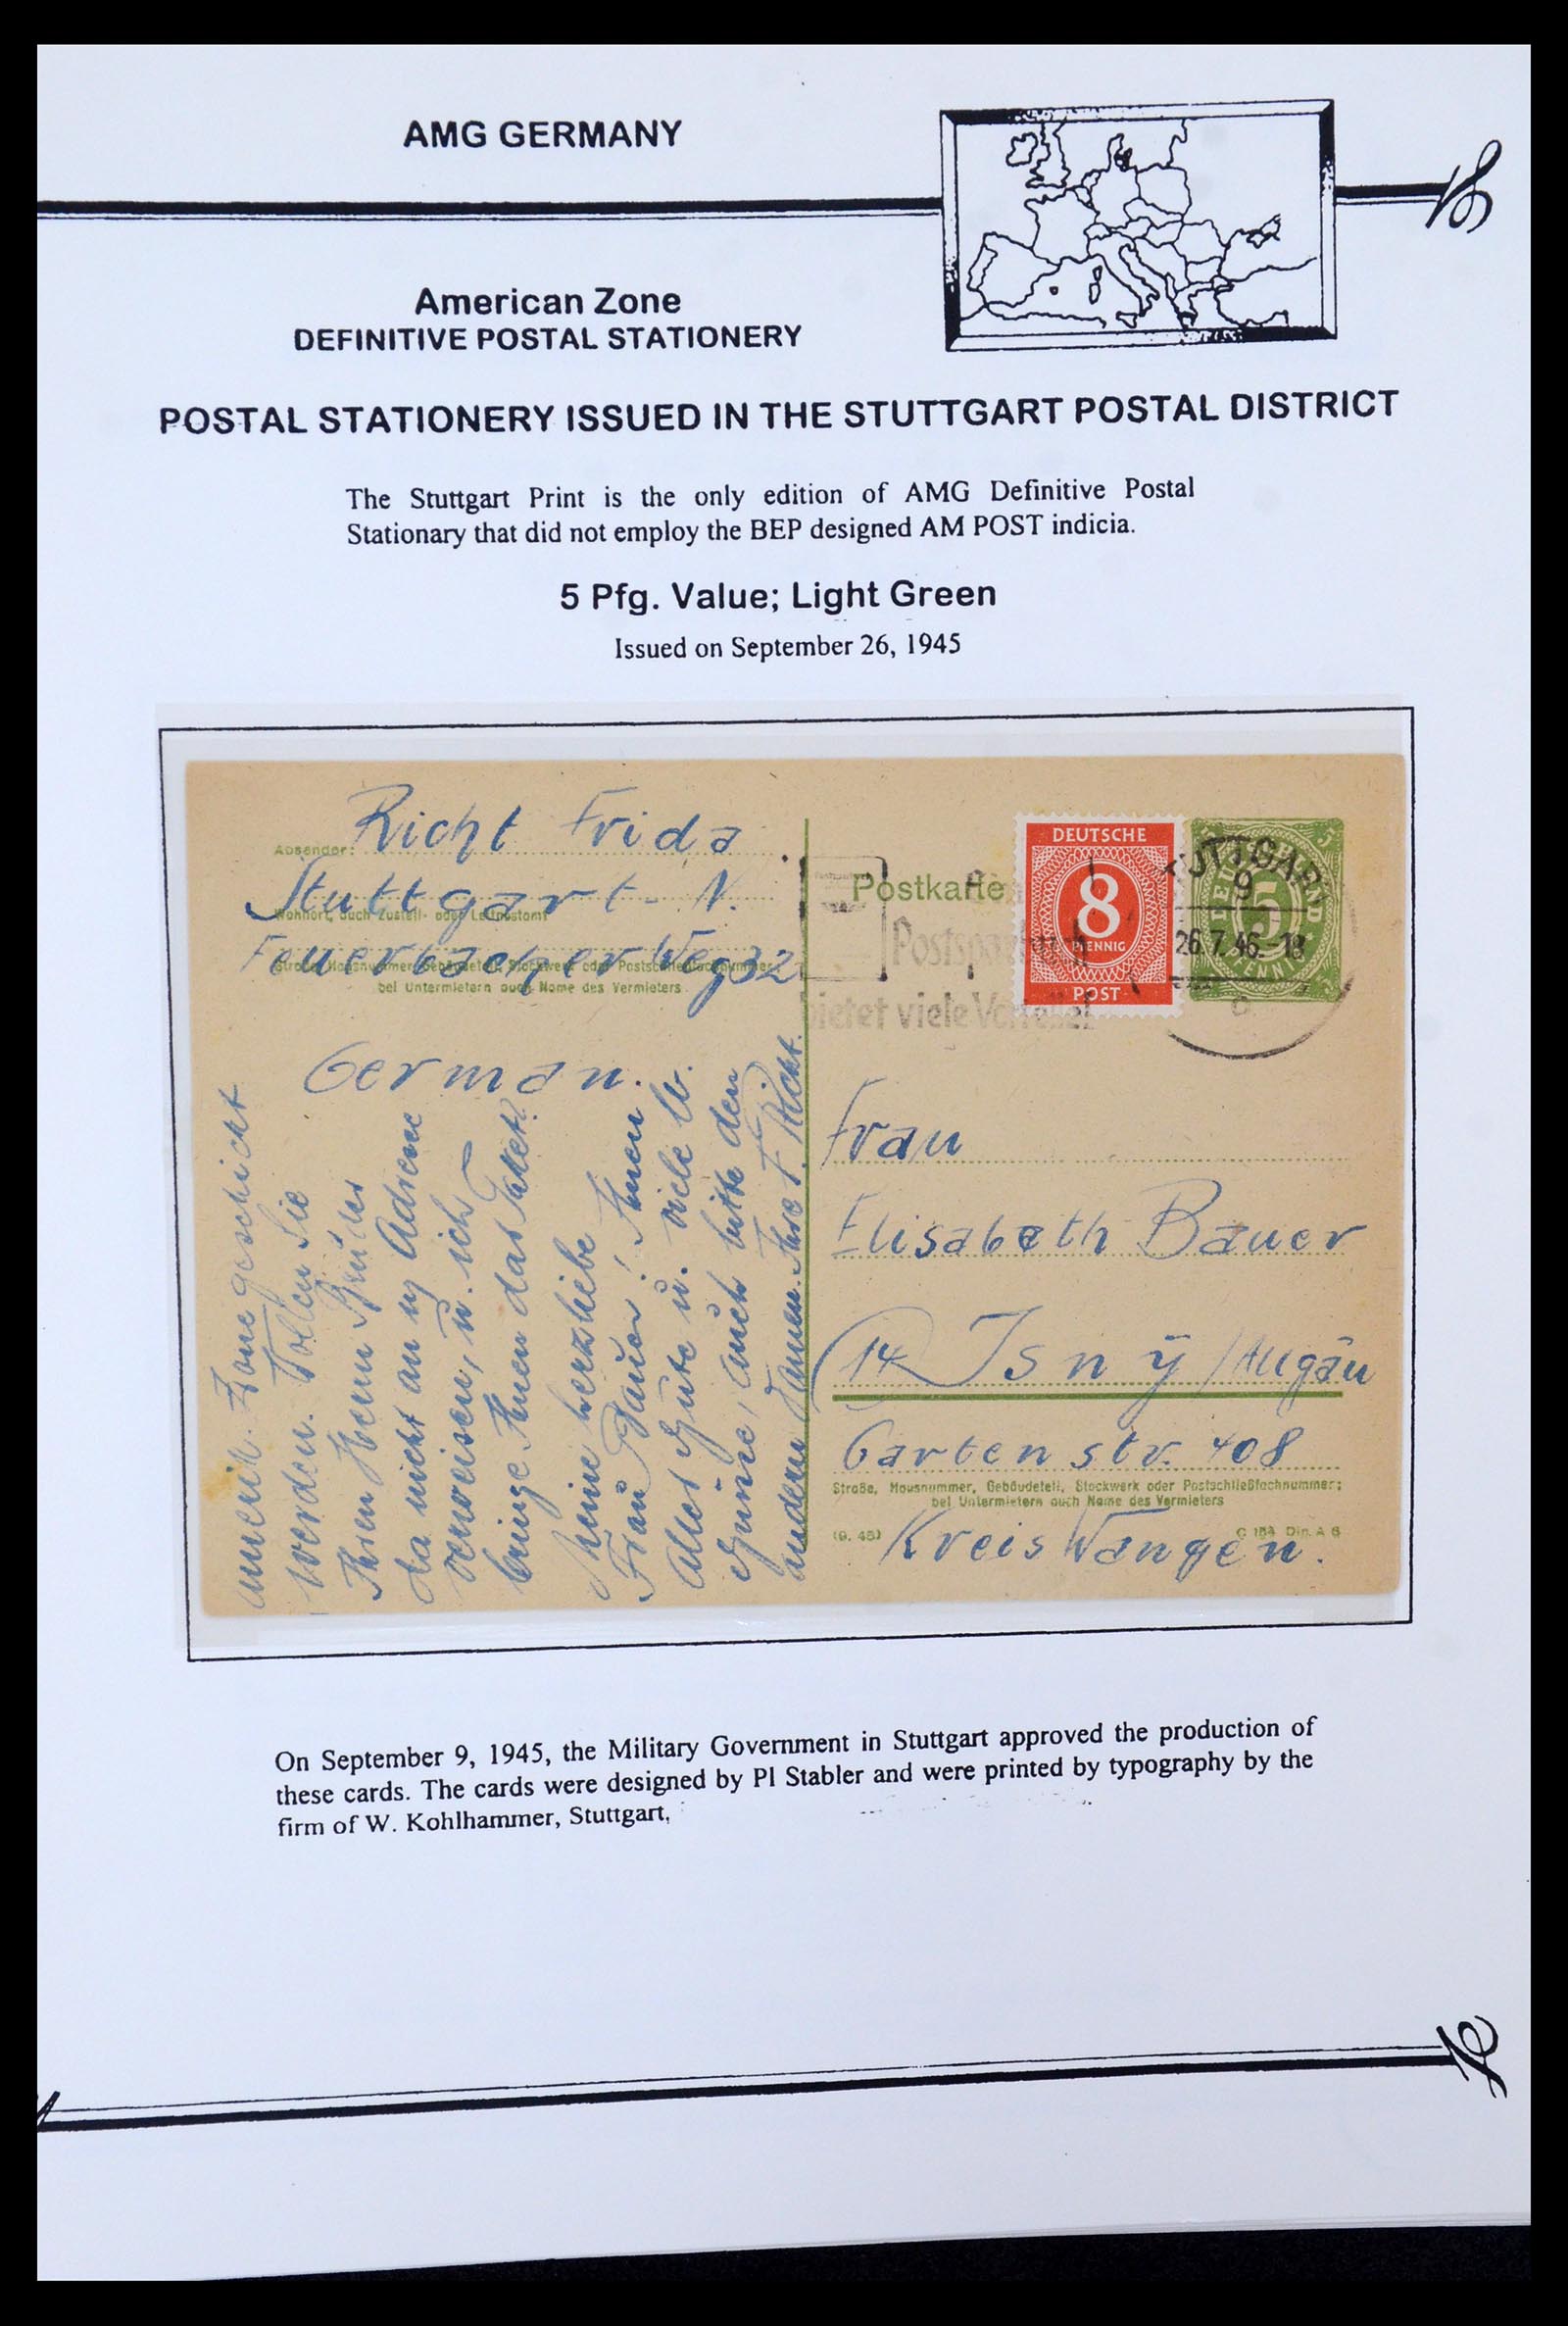 AMG GERMANY
American Zone
DEFINITIVE POSTAL STATIONERY
POSTAL STATIONERY ISSUED IN THE STUTTGART POSTAL DISTRICT
The Stuttgart Print is the only edition of AMG Definitive Postal
Stationary that did not employ the BEP designed AM POST indicia.
5 Pfg. Value; Light Green
Issued on September 26, 1945
Absender: Richt Frida
Stuttgart-N.
Wohnort, auch Zustell- oder Leitpostamt
Feuerbacher Weg 32
Straße, Hausnummer, Gebäudeteil, Stockwerk oder Postschließfachnummer;
bei Untermietern auch Name des Vermieters
German.
amerik. Zone geschickt
werden. Wollen Sie
Ihren Herrn Bruder
da nicht an m Adresse
verweisen, u. ich
bringe Ihnen das Paket.
Meine herzliebe
Frau Bauer, Ihnen
alles Gute u. viele lb.
Grüsse, auch bitte den
andern Damen. Ihre F. Richt.
Postkarte
Postsparbuch
bietet viele Vorteile!
DEUTSCHE
8
PFENNIG
POST
STUTTGART
9
26.7.46.-18
c
DEUTSCHLAND
5
PFENNIG
Frau
Elisabeth Bauer
(14 Isny /Allgäu
Gartenstr. 408
Straße, Hausnummer, Gebäudeteil, Stockwerk oder Postschließfachnummer;
bei Untermietern auch Name des Vermieters
(9. 45)
C 154 Din. A 6
Kreis Wangen.
On September 9, 1945, the Military Government in Stuttgart approved the production of
these cards. The cards were designed by PI Stabler and were printed by typography by the
firm of W. Kohlhammer, Stuttgart,